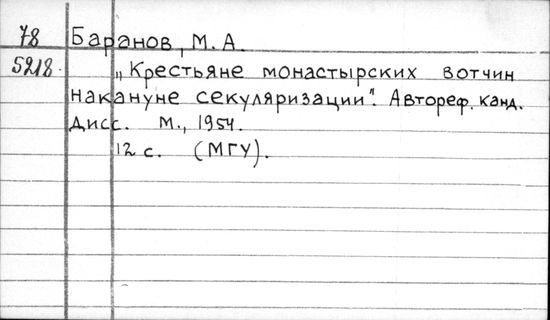 78 Баранов, М. А.
5218. „Крестьяне монастырских вотчин
накануне секуляризации". Автореф. канд.
дисс. М., 1954.
12 с. (МГУ).